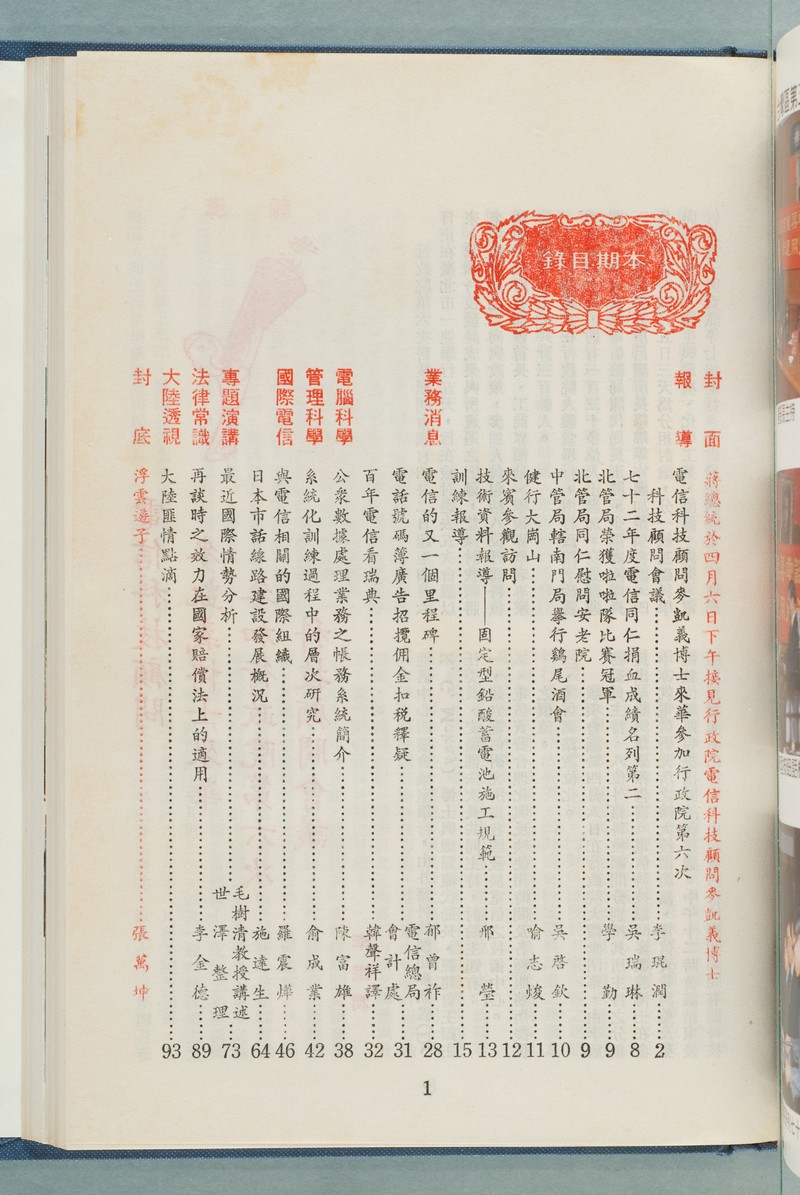 本期目錄
封面 蔣總統於四月六日下午接見行政院電信科技顧問麥凱義博士
報導 電信科技顧問麥凱義博士來華參加行政院第六次
科技顧問會議……李琨潤……2
七十二年度電信同仁捐血成績名列第二……吳瑞琳……8
北管局榮獲啦啦隊比賽冠軍……學勤……9
北管局同仁慰問安老院……9
中管局轄南門局舉行鷄尾酒會……吳啓欽……10
健行大崗山……喻志焌……11
來賓參觀訪問……12
技術資料報導——固定型鉛酸蓄電池施工規範……邢瑩……13
訓練報導……15
業務消息 電信的又一個里程碑……郁曾祚……28
電話號碼簿廣告招攬佣金扣税釋疑……電信總局會計處……31
百年電信看瑞典……韓聲祥譯……32
電腦科學 公衆數據處理業務之帳務系統簡介……陳富雄……38
管理科學 系統化訓練過程中的層次研究……俞成業……42
國際電信 與電信相關的國際組織……羅震燁……46
日本市話線路建設發展概況……施達生……64
專題演講 最近國際情勢分析……毛樹清教授講述 世澤整理……73
法律常識 再談時之效力在國家賠償法上的適用……李金德……89
大陸透視 大陸匪情點滴……93
封底 浮雲遊子……張萬坤
1